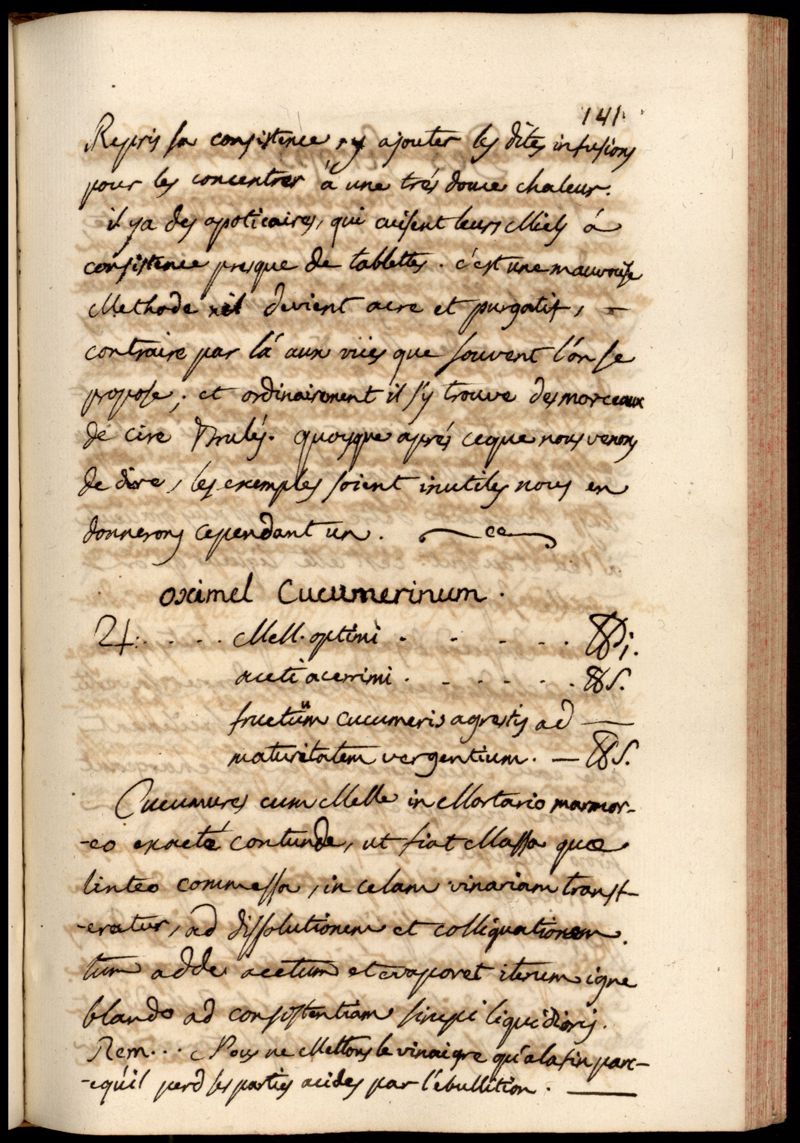 141.
Repris sa consistence, y ajouter les dites infusions
pour les concentrer à une trés douce chaleur.
il ya des apoticaires, qui cuisent leurs Miels à
consistence presque de tablettes. c'est une mauvaise
Methode, il devient acre et purgatif,
contraire par là aux vües que souvent l'on se
propose; et ordinairement il s'y trouve des morceaux
de cire Brulés. quoyque aprés ceque nous venons
de dire, les exemples soient inutiles nous en
donnerons cependant un.
oximel Cucumerinum.
♃: . . . . Mell. optimi . - - - . . ℔j.
aceti acerrimi . - - - . . ℔S.
fructüm cucumeris agrestis ad —
maturitatem vergentium. — ℔S.
Cucumeres cum Melle in Mortario marmor-
-eo exactè contunde, ut fiat Massa quæ
linteo commessa, in celam vinariam transf-
-eratur, ad dissolutionem et colliquationem.
tum adde acetum et evaporet iterum igne
blando ad consistentiam sirupi liquidioris.
Rem... Nous ne Mettons le vinaigre qu'a la fin parc-
-equ'il perd ses parties acides par l'ébullition. —